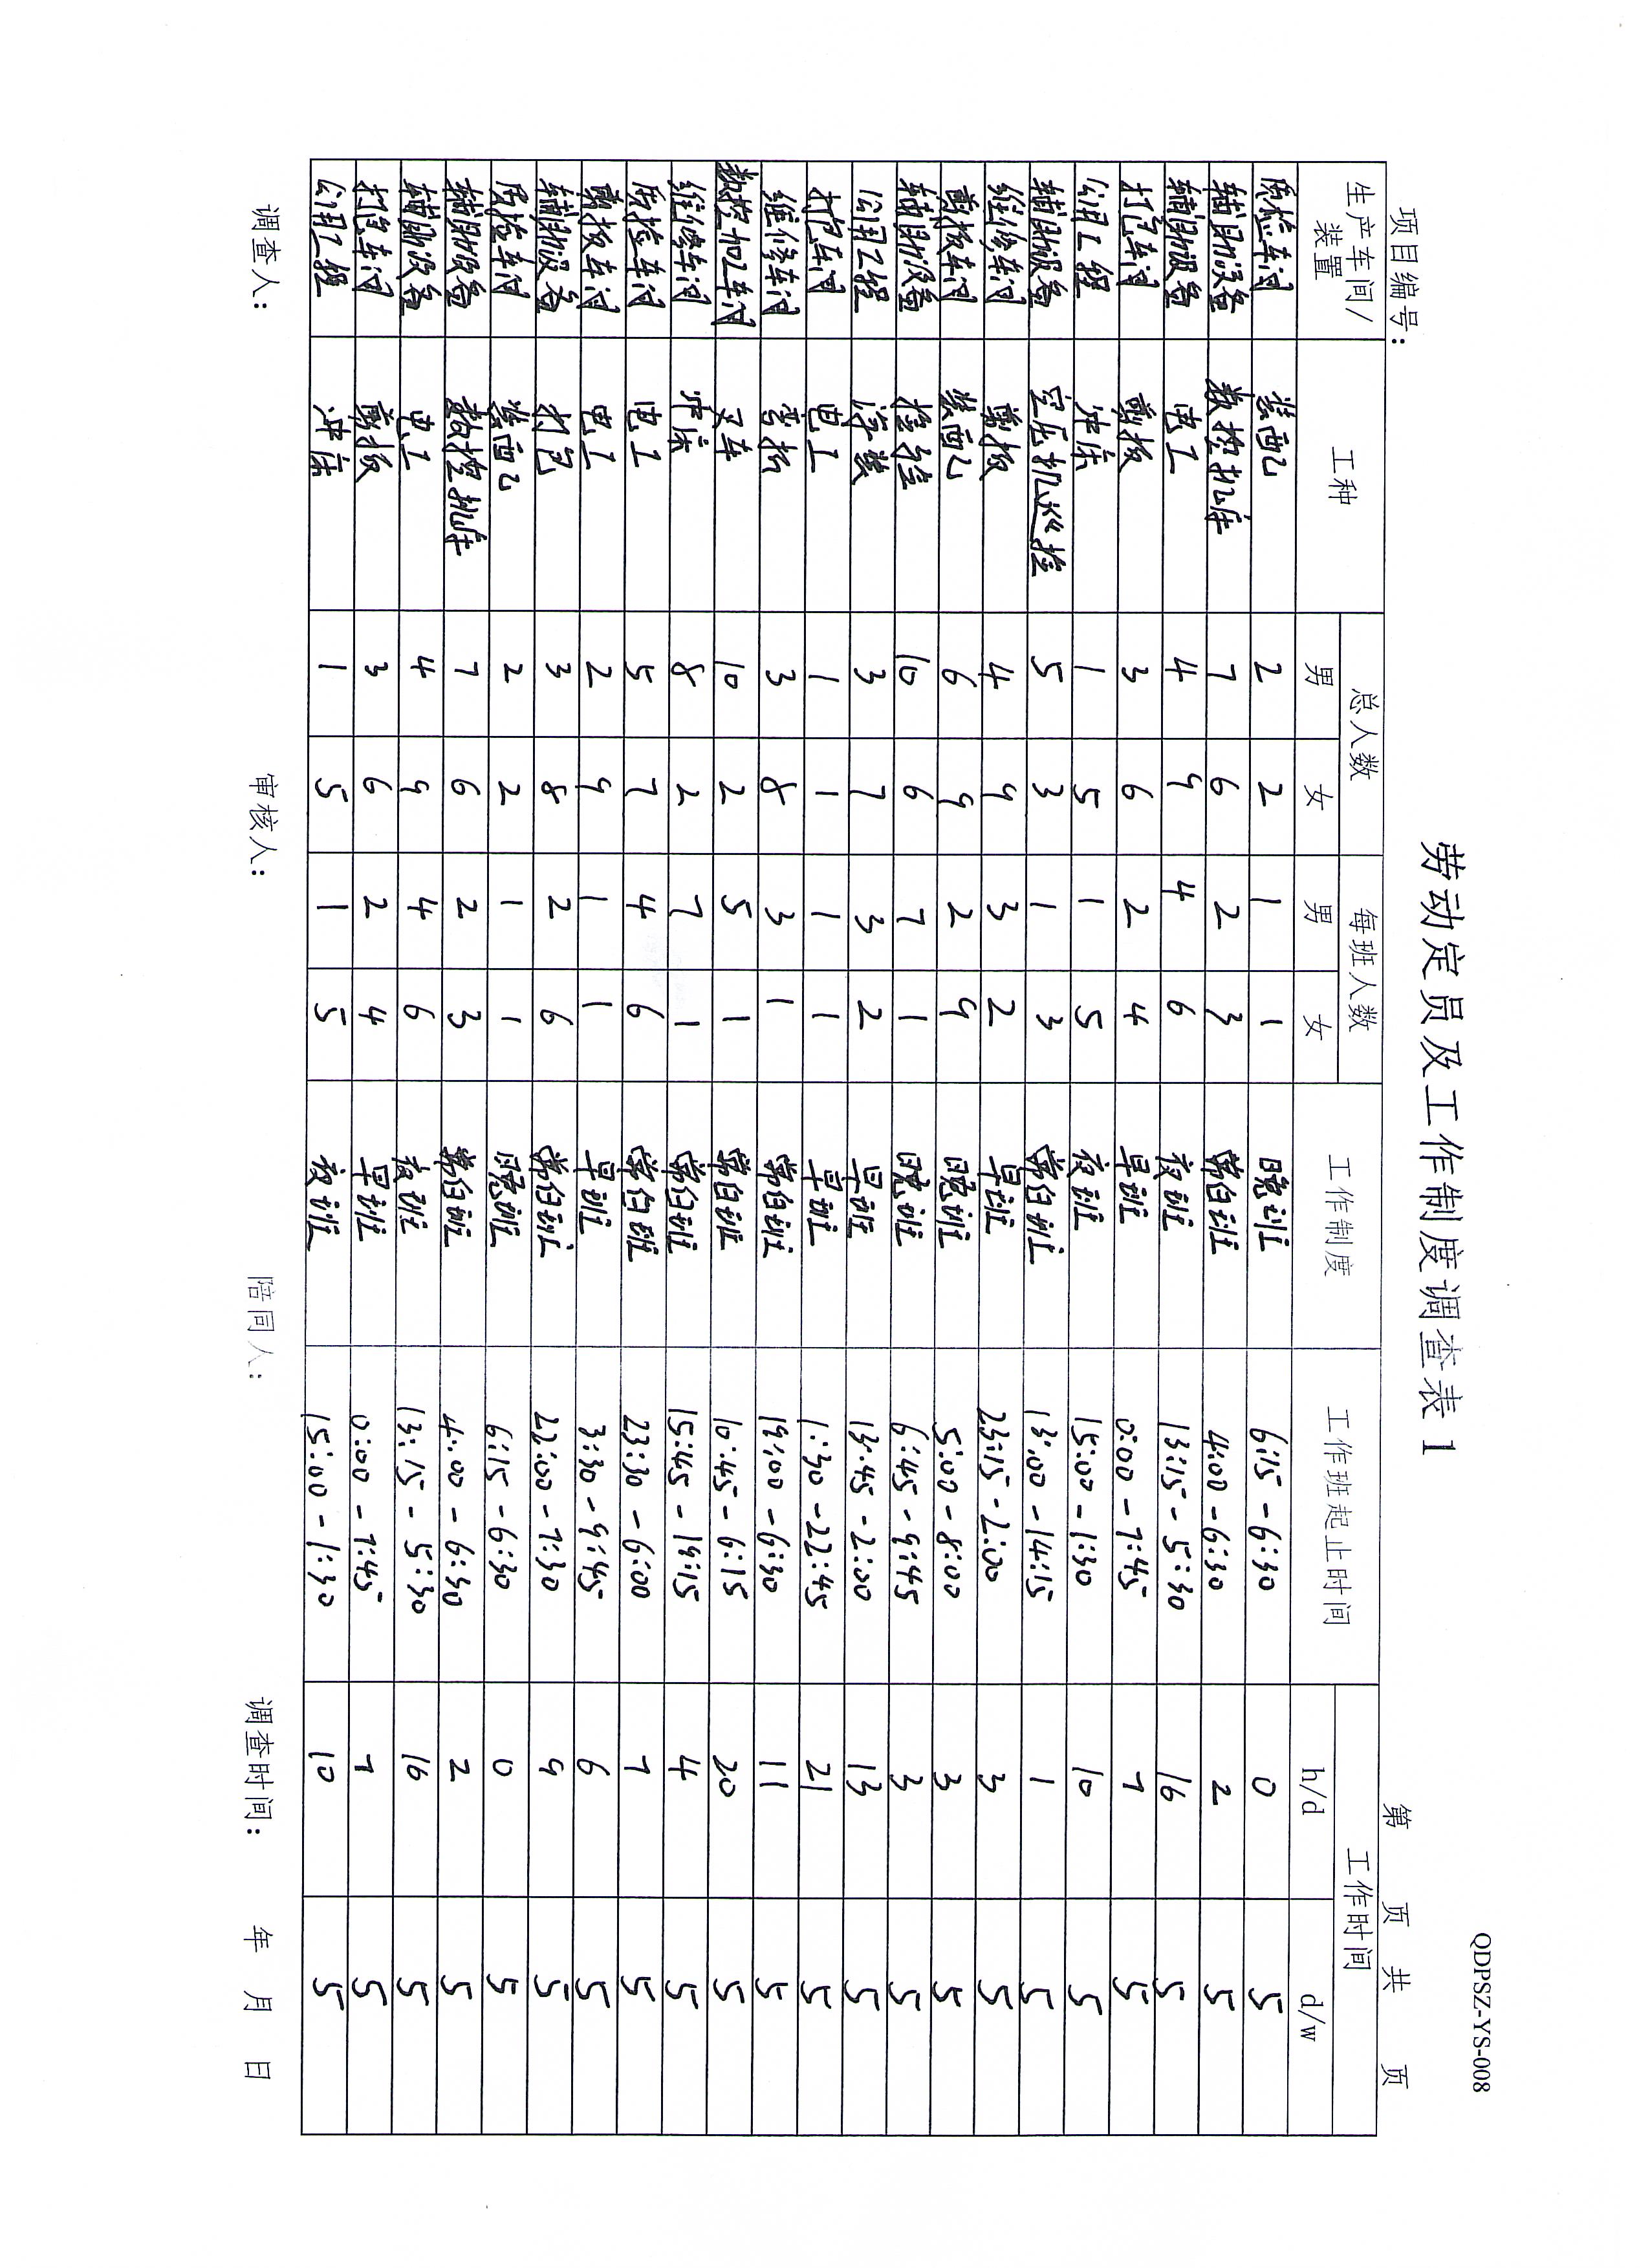 QDPSZ-YS-008
劳动定员及工作制度调查表1
项目编号: 第 页 共 页
生产车间/装置 工种 总人数 每班人数 工作制度 工作班起止时间 工作时间
男 女 男 女 h/d d/w
质检车间 装配 2 2 1 1 晚班 6:15-6:30 0 5
辅助设备 数控机床 7 6 2 3 常白班 4:00-6:30 2 5
辅助设备 电工 4 9 4 6 夜班 13:15-5:30 16 5
打包车间 剪板 3 6 2 4 早班 0:00-7:45 7 5
公用工程 冲床 1 5 1 5 夜班 15:00-1:30 10 5
辅助设备 空压机巡检 5 3 1 3 常白班 13:00-14:15 1 5
维修车间 剪板 4 9 3 2 早班 23:15-2:00 3 5
剪板车间 装配 6 9 2 9 晚班 5:00-8:00 3 5
辅助设备 检验 10 6 7 1 晚班 6:45-9:45 3 5
公用工程 涂装 3 7 3 2 早班 13:45-2:00 13 5
打包车间 电工 1 1 1 1 早班 1:30-22:45 21 5
维修车间 弯折 3 8 3 1 常白班 19:00-6:30 11 5
数控加工车间 叉车 10 2 5 1 常白班 10:45-6:15 20 5
维修车间 冲床 8 2 7 1 常白班 15:45-19:15 4 5
质检车间 电工 5 7 4 6 常白班 23:30-6:00 7 5
剪板车间 电工 2 9 1 1 早班 3:30-9:45 6 5
辅助设备 打包 3 8 2 6 常白班 22:00-7:30 9 5
质检车间 装配 2 2 1 1 晚班 6:15-6:30 0 5
辅助设备 数控机床 7 6 2 3 常白班 4:00-6:30 2 5
辅助设备 电工 4 9 4 6 夜班 13:15-5:30 16 5
打包车间 剪板 3 6 2 4 早班 0:00-7:45 7 5
公用工程 冲床 1 5 1 5 夜班 15:00-1:30 10 5
调查人: 审核人: 陪同人: 调查时间: 年 月 日